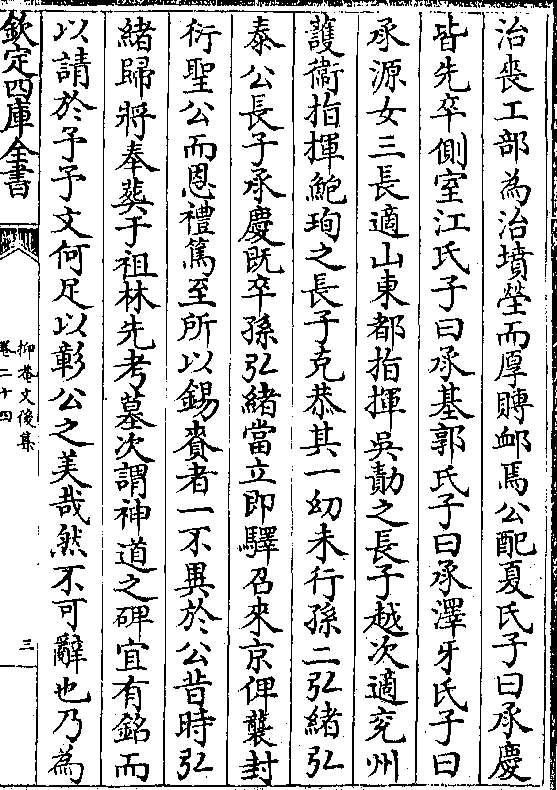 治喪工部為治墳塋而厚賻䘏焉公配夏氏子曰承慶
皆先卒側室江氏子曰承基郭氏子曰承澤牙氏子曰
承源女三長適山東都指揮吳勣之長子越次適兖州
護衛指揮鮑珣之長子克恭其一幼未行孫二弘緒弘
泰公長子承慶既卒孫弘緒當立即驛召來京俾襲封
衍聖公而恩禮篤至所以錫賚者一不異於公昔時弘
緒歸將奉葬于祖林先考墓次謂神道之碑宜有銘而
以請於予予文何足以彰公之美哉然不可辭也乃為
欽定四庫全書
抑菴文後集
卷二十四
三